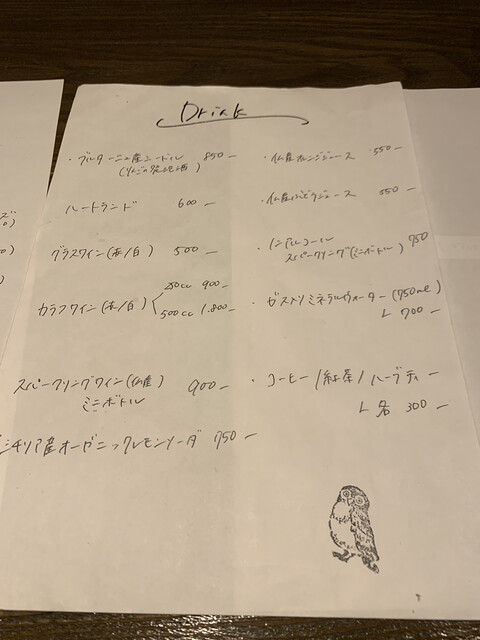 Drink
・ブルターニュ産シードル 850-
(りんごの発泡酒)
ハートランド 600-
グラスワイン(赤/白) 500-
カラフワイン(赤/白) 250cc 900-
500cc 1.800-
スパークリングワイン(仏産) 900-
ミニボトル
シチリア産オーガニックレモンソーダ 750-
・仏産オレンジジュース 550-
・仏産ぶどうジュース 550-
・ノンアルコール 750
スパークリング(ミニボトル)
・ガス入りミネラルウォーター(750ml)
700-
・コーヒー/紅茶/ハーブティー
各 300-